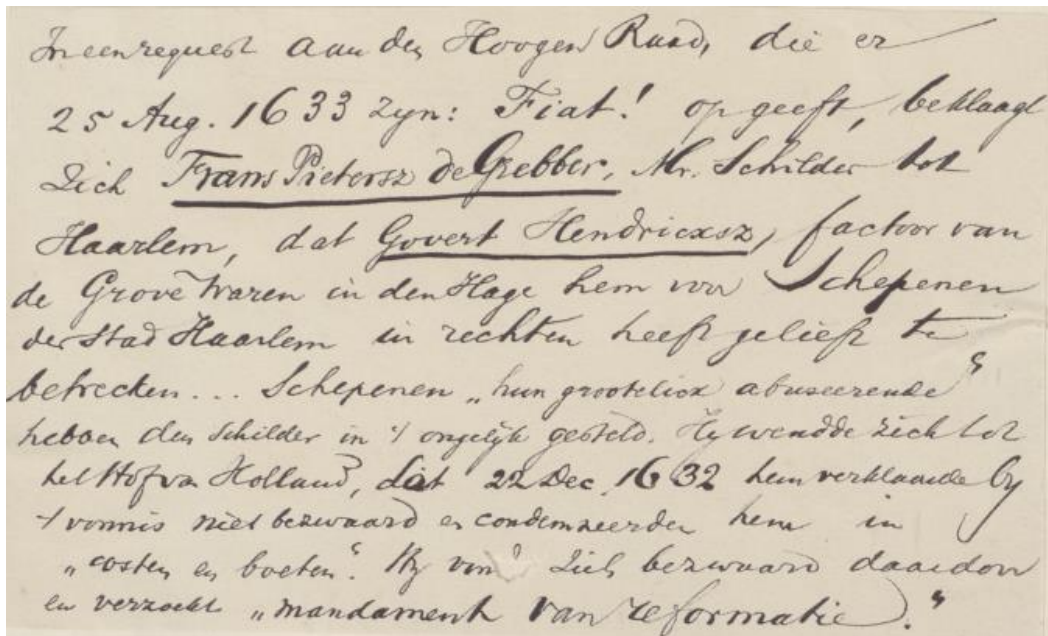 In een request aan den Hoogen Raad, die er
25 Aug. 1633 zyn: Fiat! op geeft, beklaagt
Zich Frans Pietersz de Grebber, Mr. Schilder tot
Haarlem, dat Govert Hendricxsz, factoor van
de Grove Waren in den Hage hem voor Schepenen
der Stad Haarlem in rechten heeft gelieft te
betrecken... Schepenen „hun grootelicx abuseerende"
hebben den Schilder in 't ongelyk gesteld. Hy wendde zich tot
het Hof van Holland, dat 22 Dec. 1632 hem verklaarde by
't vonnis niet bezwaard en condemneerden hem in
„costen en boeten". Hy vind zich bezwaard daardoor
en verzoekt „mandament van reformatie."